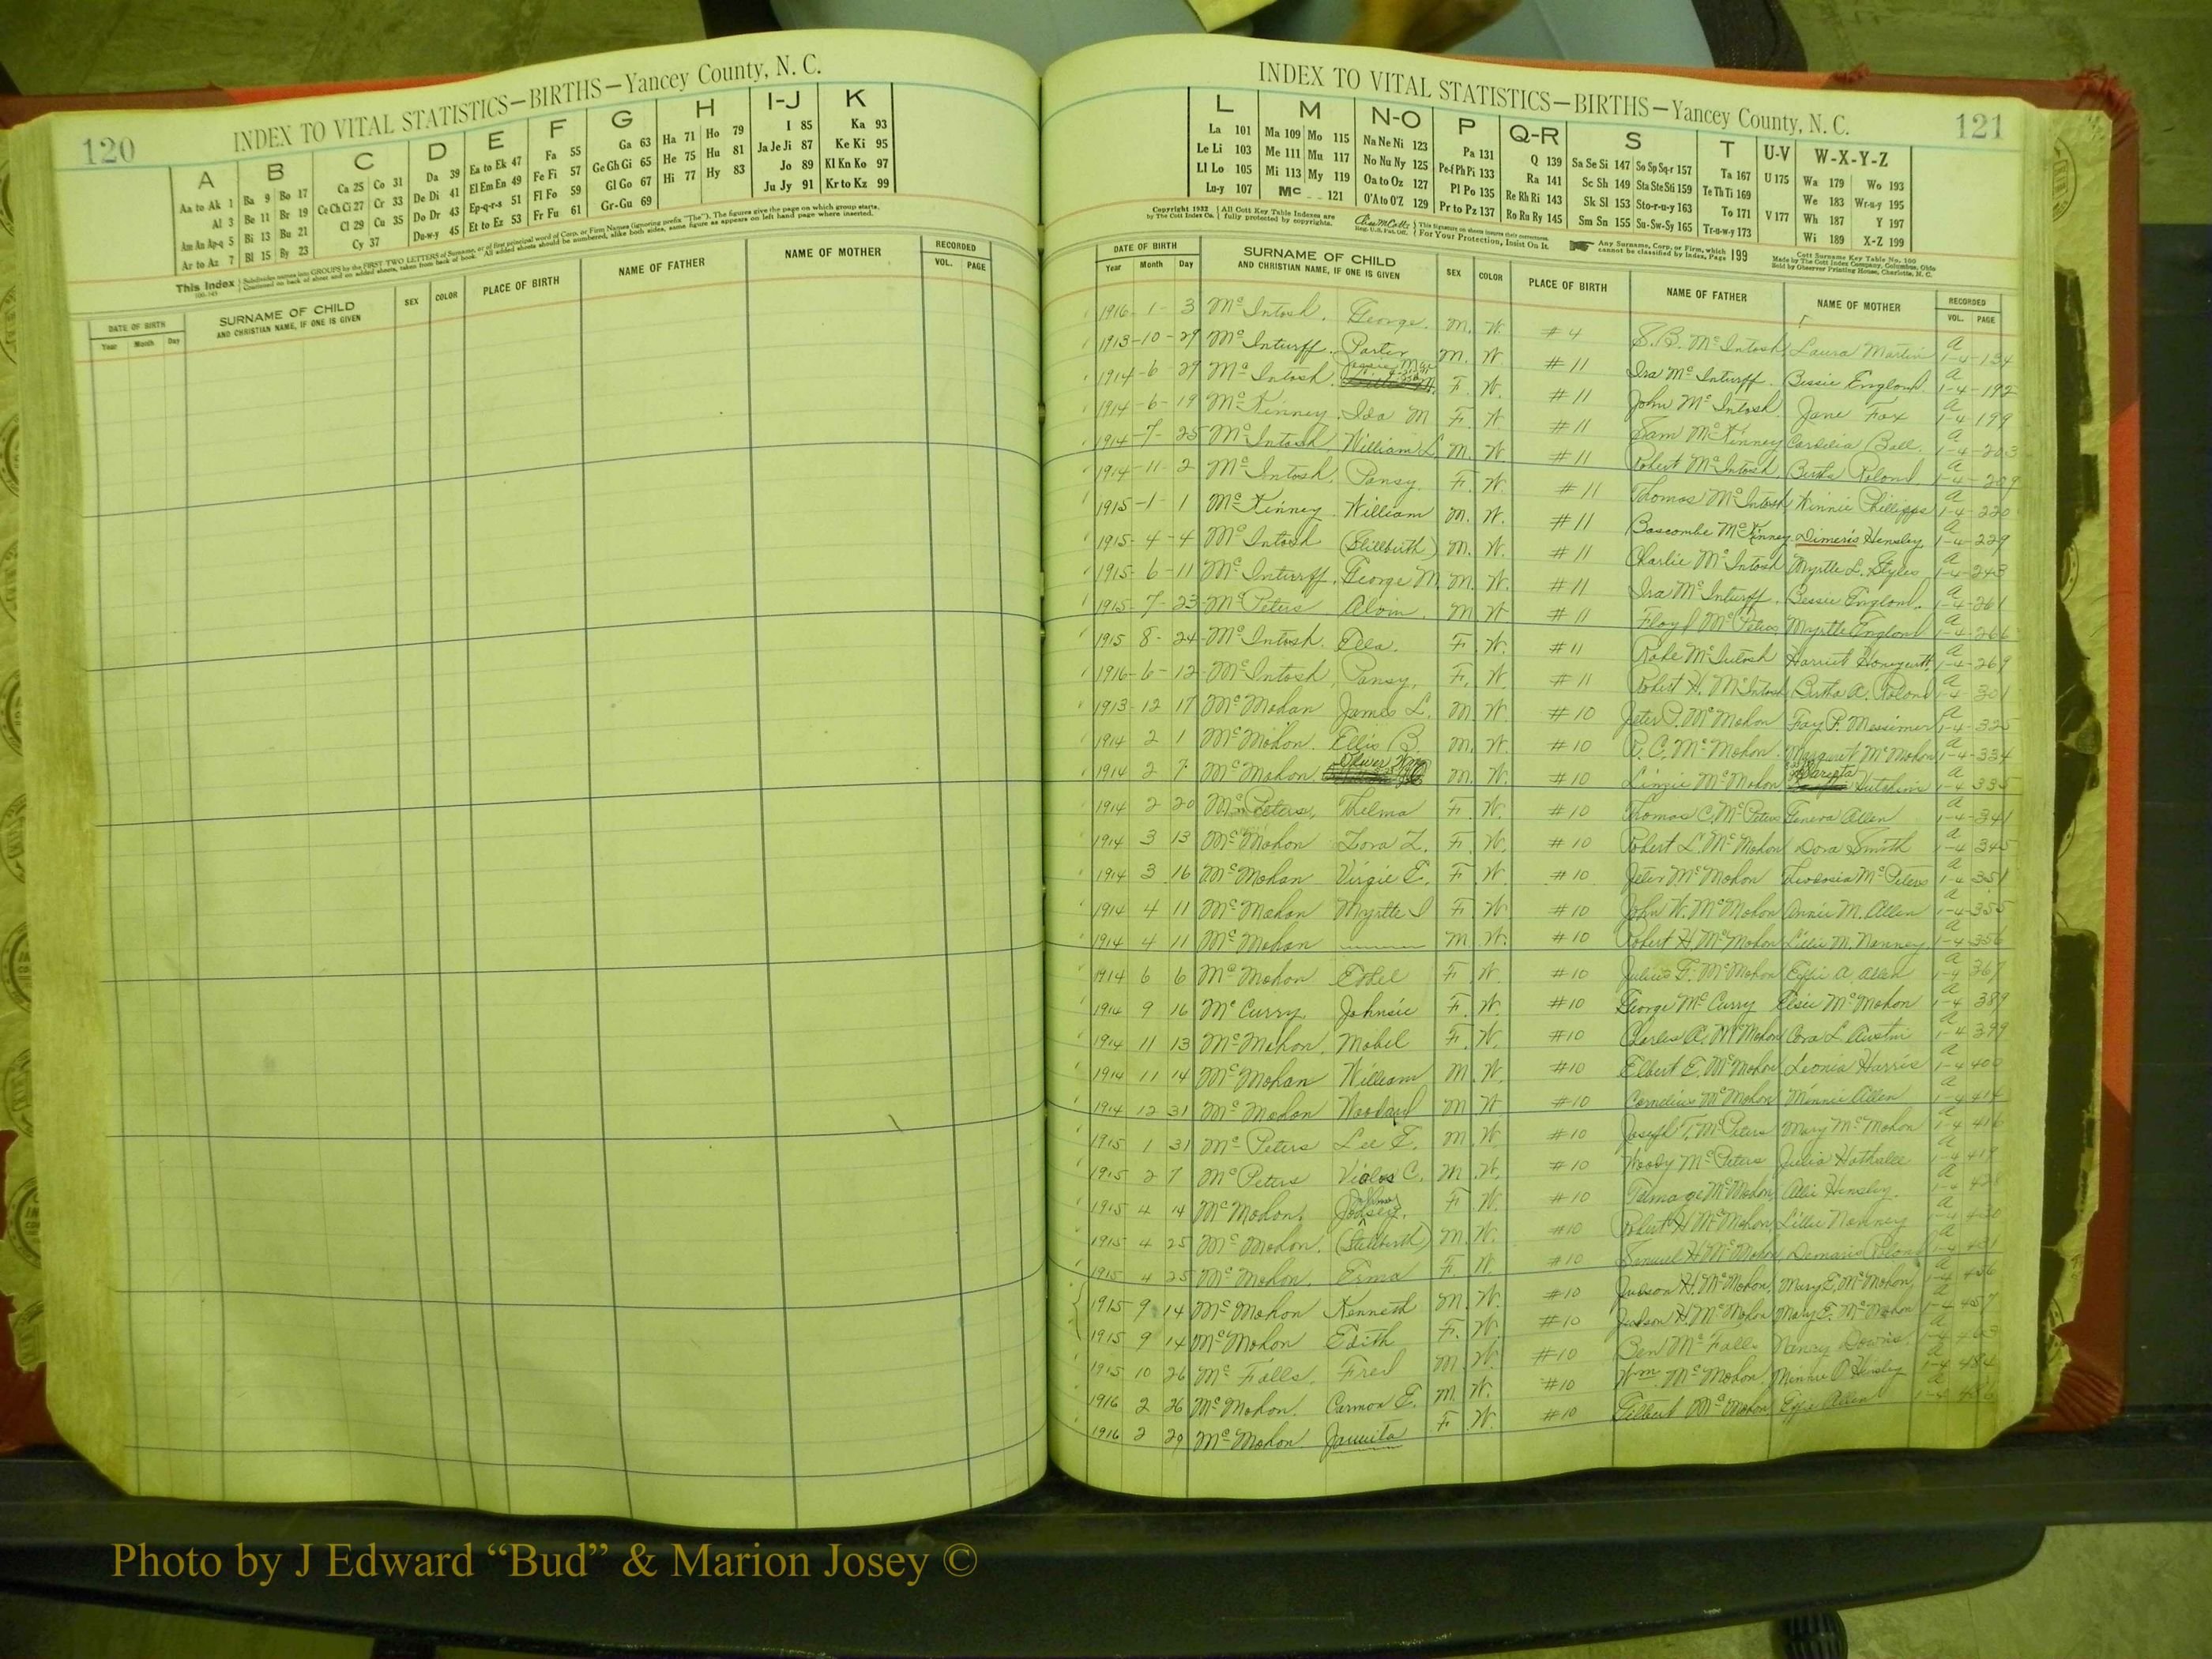 120
INDEX TO VITAL STATISTICS—BIRTHS—Yancey County, N. C.
A B C D E F G H I-J K
Aa to Ak 1 Ba 9 Bo 17 Ca 25 Co 31 Da 39 Ea to Ek 47 Fa 55 Ga 63 Ha 71 Ho 79 I 85 Ka 93
Al 3 Be 11 Br 19 Ce Ch Ci 27 Cr 33 De Di 41 El Em En 49 Fe Fi 57 Ge Gh Gi 65 He 75 Hu 81 Ja Je Ji 87 Ke Ki 95
Am An Ap-q 5 Bi 13 Bu 21 Cl 29 Cu 35 Do Dr 43 Ep-q-r-s 51 Fl Fo 59 Gl Go 67 Hi 77 Hy 83 Jo 89 Kl Kn Ko 97
Ar to Az 7 Bl 15 By 23 Cy 37 Du-w-y 45 Et to Ez 53 Fr Fu 61 Gr-Gu 69 Ju Jy 91 Kr to Kz 99
This Index
DATE OF BIRTH SURNAME OF CHILD SEX COLOR PLACE OF BIRTH NAME OF FATHER NAME OF MOTHER RECORDED
Year Month Day AND CHRISTIAN NAME, IF ONE IS GIVEN VOL. PAGE
INDEX TO VITAL STATISTICS—BIRTHS—Yancey County, N. C.
121
L M N-O P Q-R S T U-V W-X-Y-Z
La 101 Ma 109 Mo 115 Na Ne Ni 123 Pa 131 Q 139 Sa Se Si 147 So Sp Sq-r 157 Ta 167 U 175 Wa 179 Wo 193
Le Li 103 Me 111 Mu 117 No Nu Ny 125 Pe-f Ph Pi 133 Ra 141 Sc Sh 149 Sta Ste Sti 159 Te Th Ti 169 We 183 Wr-u-y 195
Ll Lo 105 Mi 113 My 119 Oa to Oz 127 Pl Po 135 Re Rh Ri 143 Sk Sl 153 Sto-r-u-y 163 To 171 V 177 Wh 187 Y 197
Lu-y 107 Mc 121 O'A to O'Z 129 Pr to Pz 137 Ro Ru Ry 145 Sm Sn 155 Su-Sw-Sy 165 Tr-u-w-y 173 Wi 189 X-Z 199
Copyright 1932 by The Cott Index Co. All Cott Key Table Indexes are fully protected by copyrights. For Your Protection, Insist On It. Any Surname, Corp. or Firm, which cannot be classified by Index, Page 199
Cott Surname Key Table No. 100
Made by The Cott Index Company, Columbus, Ohio
Sold by Observer Printing House, Charlotte, N. C.
DATE OF BIRTH SURNAME OF CHILD SEX COLOR PLACE OF BIRTH NAME OF FATHER NAME OF MOTHER RECORDED
Year Month Day AND CHRISTIAN NAME, IF ONE IS GIVEN VOL. PAGE
1916-1-3 McIntosh, George. M. W. #4 S. B. McIntosh Laura Martin A 1-4-134
1913-10-29 McInturff, Porter M. W. #11 Ira McInturff. Bessie England. A 1-4-192
1914-6-29 McIntosh, F. W. #11 John McIntosh. Jane Fox A 1-4-199
1914-6-19 McKinney, Ida M F. W. #11 Sam McKinney Ball. A 1-4-203
1914-7-25 McIntosh, William L. M. W. #11 Robert McIntosh, Birtha Roland. A 1-4-209
1914-11-2 McIntosh, Pansy. F. W. #11 Thomas McIntosh Winnie Phillipps A 1-4-220
1915-1-1 McKinney. William M. W. #11 Bascombe McKinney. Dimeris Hensley A 1-4-229
1915-4-4 McIntosh (Stillbirth) M. W. #11 Charlie McIntosh Myrtle L. Styles A 1-4-243
1915-6-11 McInturff, George M. M. W. #11 Ira McInturff. Bessie England. A 1-4-261
1915-7-23 McPeters Alvin. M W #11 Floyd McPeters Myrtle England A 1-4-266
1915 8-24 McIntosh. Ella. F. W. #11 McIntosh Harriet Honeycutt A 1-4-269
1916-6-12 McIntosh, Pansy, F. W. #11 Robert H. McIntosh Birtha A. Roland A 1-4-301
1913-12 17 McMahan James L. M. W. #10 Jeter P. McMahon Fay P. Messimer A 1-4-325
1914 2 1 McMahon. Ellis B. M. W. #10 C. McMahon. Margaret McMahon A 1-4-334
1914 2 7 McMahon, Oliver M. W. #10 Linzie McMahon Hutchins A 1-4-335
1914 2 20 McPeters, Thelma F. W. #10 Thomas C. McPeters Geneva Allen A 1-4-341
1914 3 13 McMahon Zora Z. F. W. #10 Robert L. McMahon Dora Smith A 1-4-345
1914 3 16 McMahan Virgie E. F. W. #10 Jeter McMahon McPeters A 1-4-351
1914 4 11 McMahan Myrtle I F. W #10 John W. McMahon Annie M. Allen A 1-4-355
1914 4 11 McMahan M. W. #10 Robert H. McMahon Lillie M. Nanney A 1-4-356
1914 6 6 McMahon Ethel F. W. #10 Julius F. McMahon Effie A. Allen A 1-4 367
1914 9 16 McCurry Johnsie F. W. #10 George McCurry Elsie McMahon A 1-4 389
1914 11 13 McMahon, Mabel F. W. #10 Charles A. McMahon Cora L. Austin A 1-4 399
1914 11 14 McMahan William M. W. #10 Elbert E. McMahon Leonia Harris A 1-4 400
1914 12 31 McMahon Woodard M W #10 Cornelius McMahon Minnie Allen A 1-4 414
1915 1 31 McPeters Lee T. M W #10 Joseph T. McPeters Mary McMahon A 1-4 416
1915 2 7 McPeters C. M. W. #10 Woody McPeters Julia A 1-4 419
1915 4 14 McMahon, F. W. #10 Talmage McMahon, Allie Hensley. A 1-4 428
1915 4 25 McMahon. (Stillbirth) M. W. #10 Robert H. McMahon, Lillie Nanney A 1-4 430
1915 4 25 McMahon. Erma F. W #10 Samuel H. McMahon Demaris Roland A 1-4
1915-9 14 McMahon Kenneth M. W. #10 Judson H. McMahon, Mary E. McMahon, A 1-4 456
1915 9 14 McMahon Edith F. W. #10 Judson H. McMahon Mary E. McMahon A 1-4 457
1915 10 26 McFalls, Fred M. W. #10 Ben McFalls Nancy A 1-4 463
1916 2 26 McMahon. Carmon E. M. W. #10 Wm. McMahon, Minnie P. Hensley A 1-4 484
1916 2 29 McMahon Jaunita F. W. #10 Gilbert McMahon Effie Allen A 1-4
Photo by J Edward “Bud” & Marion Josey ©